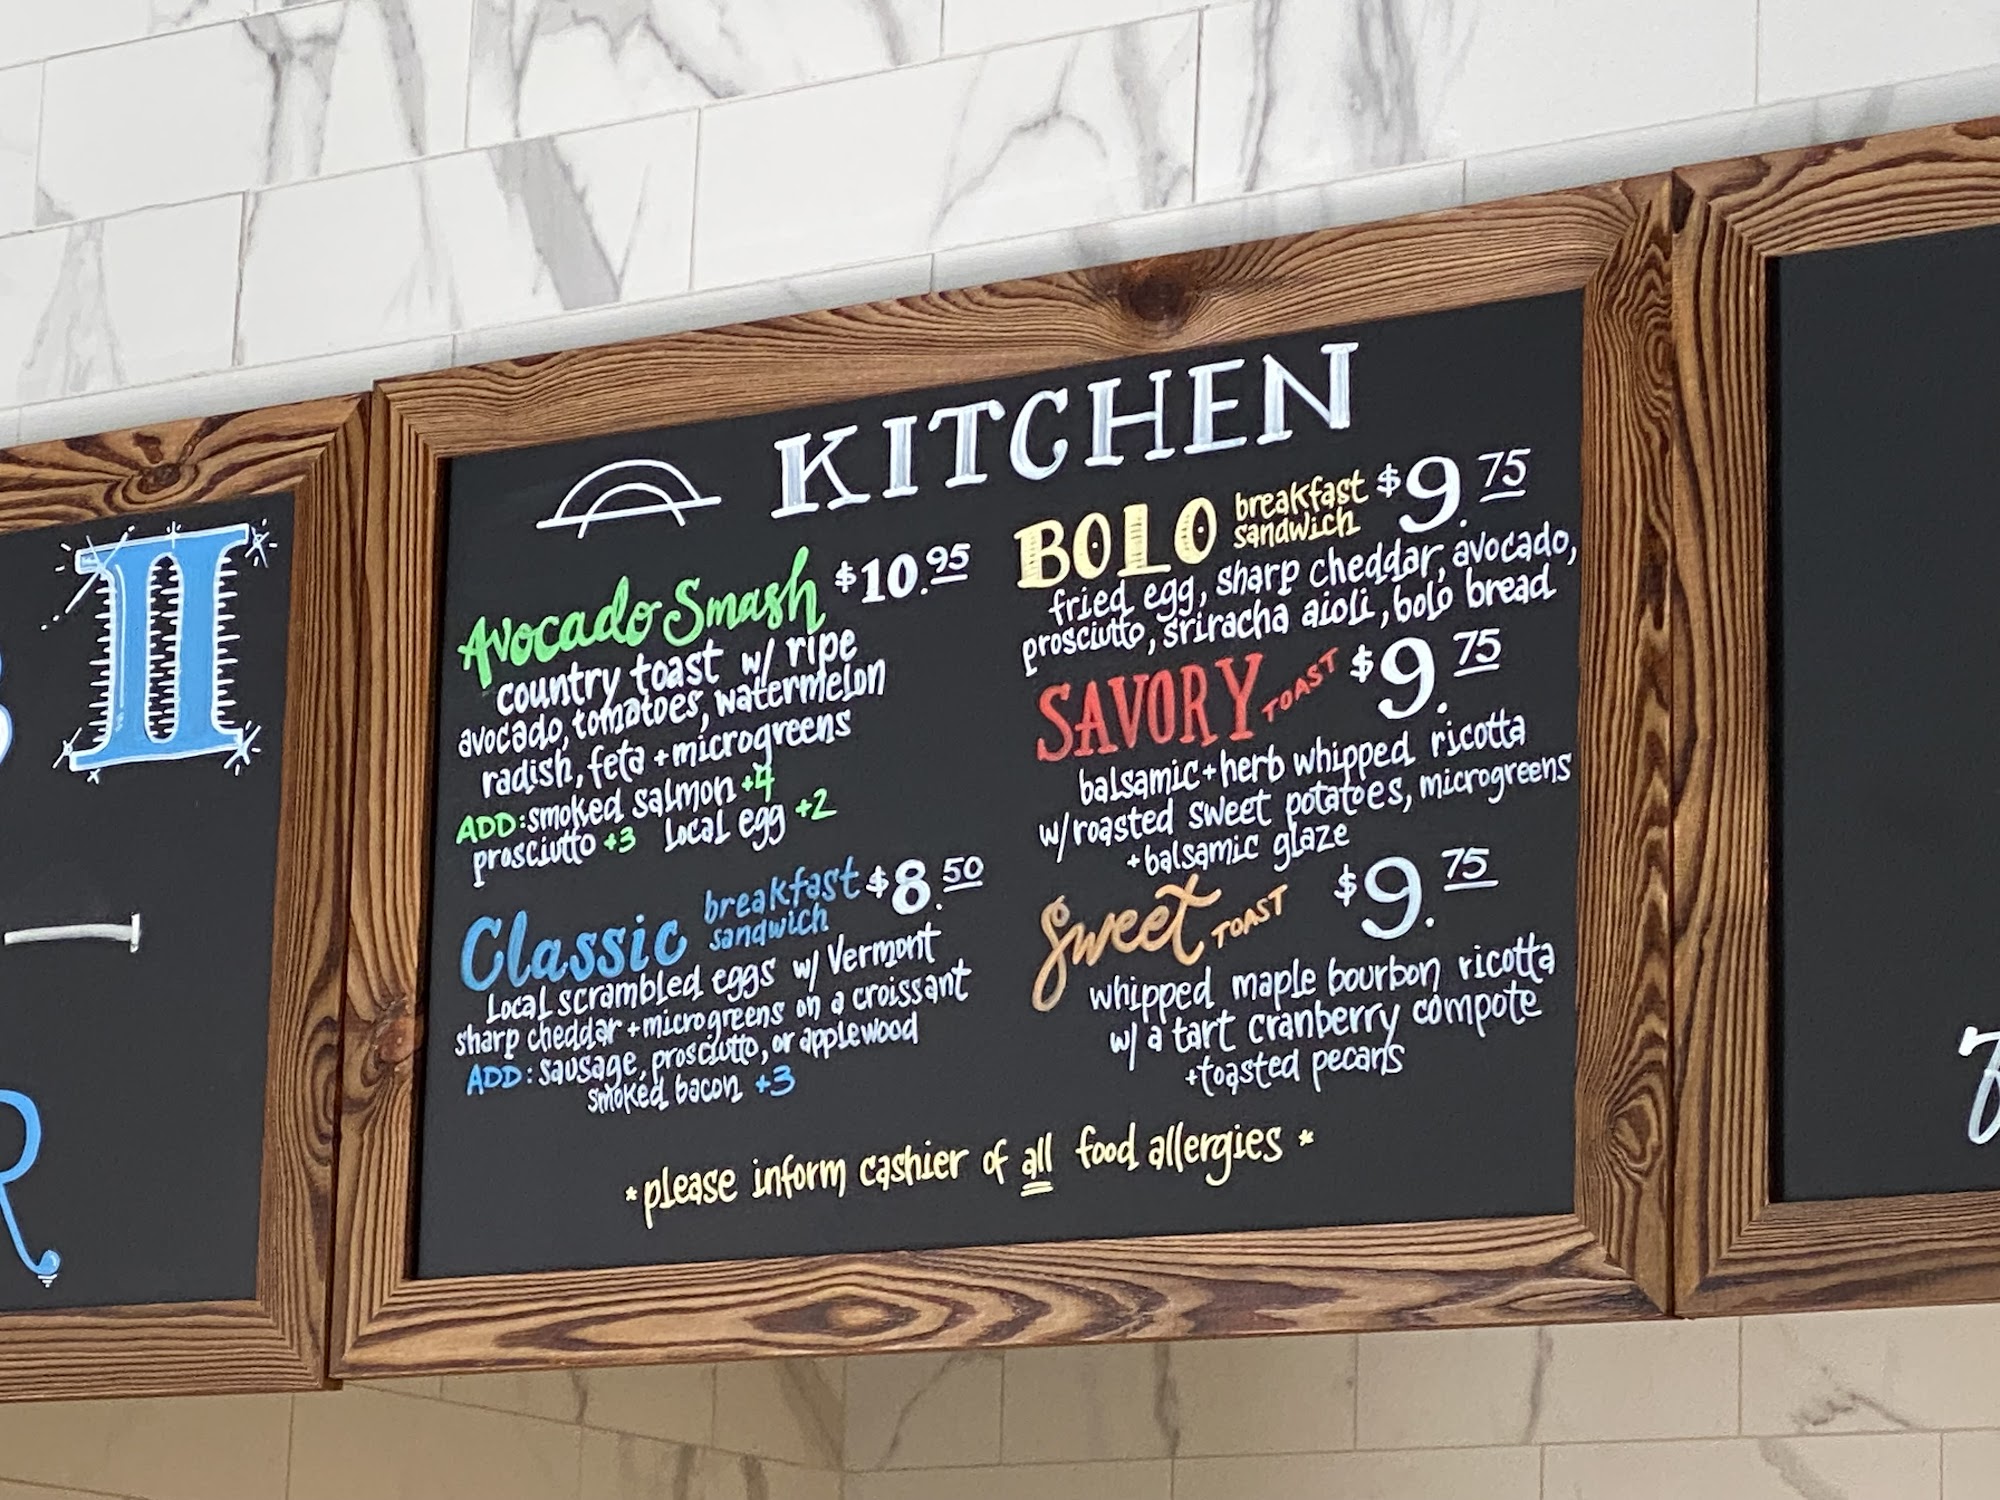 II
KITCHEN
Avocado Smash $10.95
country toast w/ ripe
avocado, tomatoes, watermelon
radish, feta + microgreens
ADD: smoked salmon +4
prosciutto +3 local egg +2
Classic breakfast sandwich $8.50
local scrambled eggs w/ Vermont
sharp cheddar + microgreens on a croissant
ADD: sausage, prosciutto, or applewood
smoked bacon +3
BOLO breakfast sandwich $9.75
fried egg, sharp cheddar, avocado,
prosciutto, sriracha aioli, bolo bread
SAVORY TOAST $9.75
balsamic + herb whipped ricotta
w/ roasted sweet potatoes, microgreens
+ balsamic glaze
Sweet TOAST $9.75
whipped maple bourbon ricotta
w/ a tart cranberry compote
+ toasted pecans
*please inform cashier of all food allergies*
R